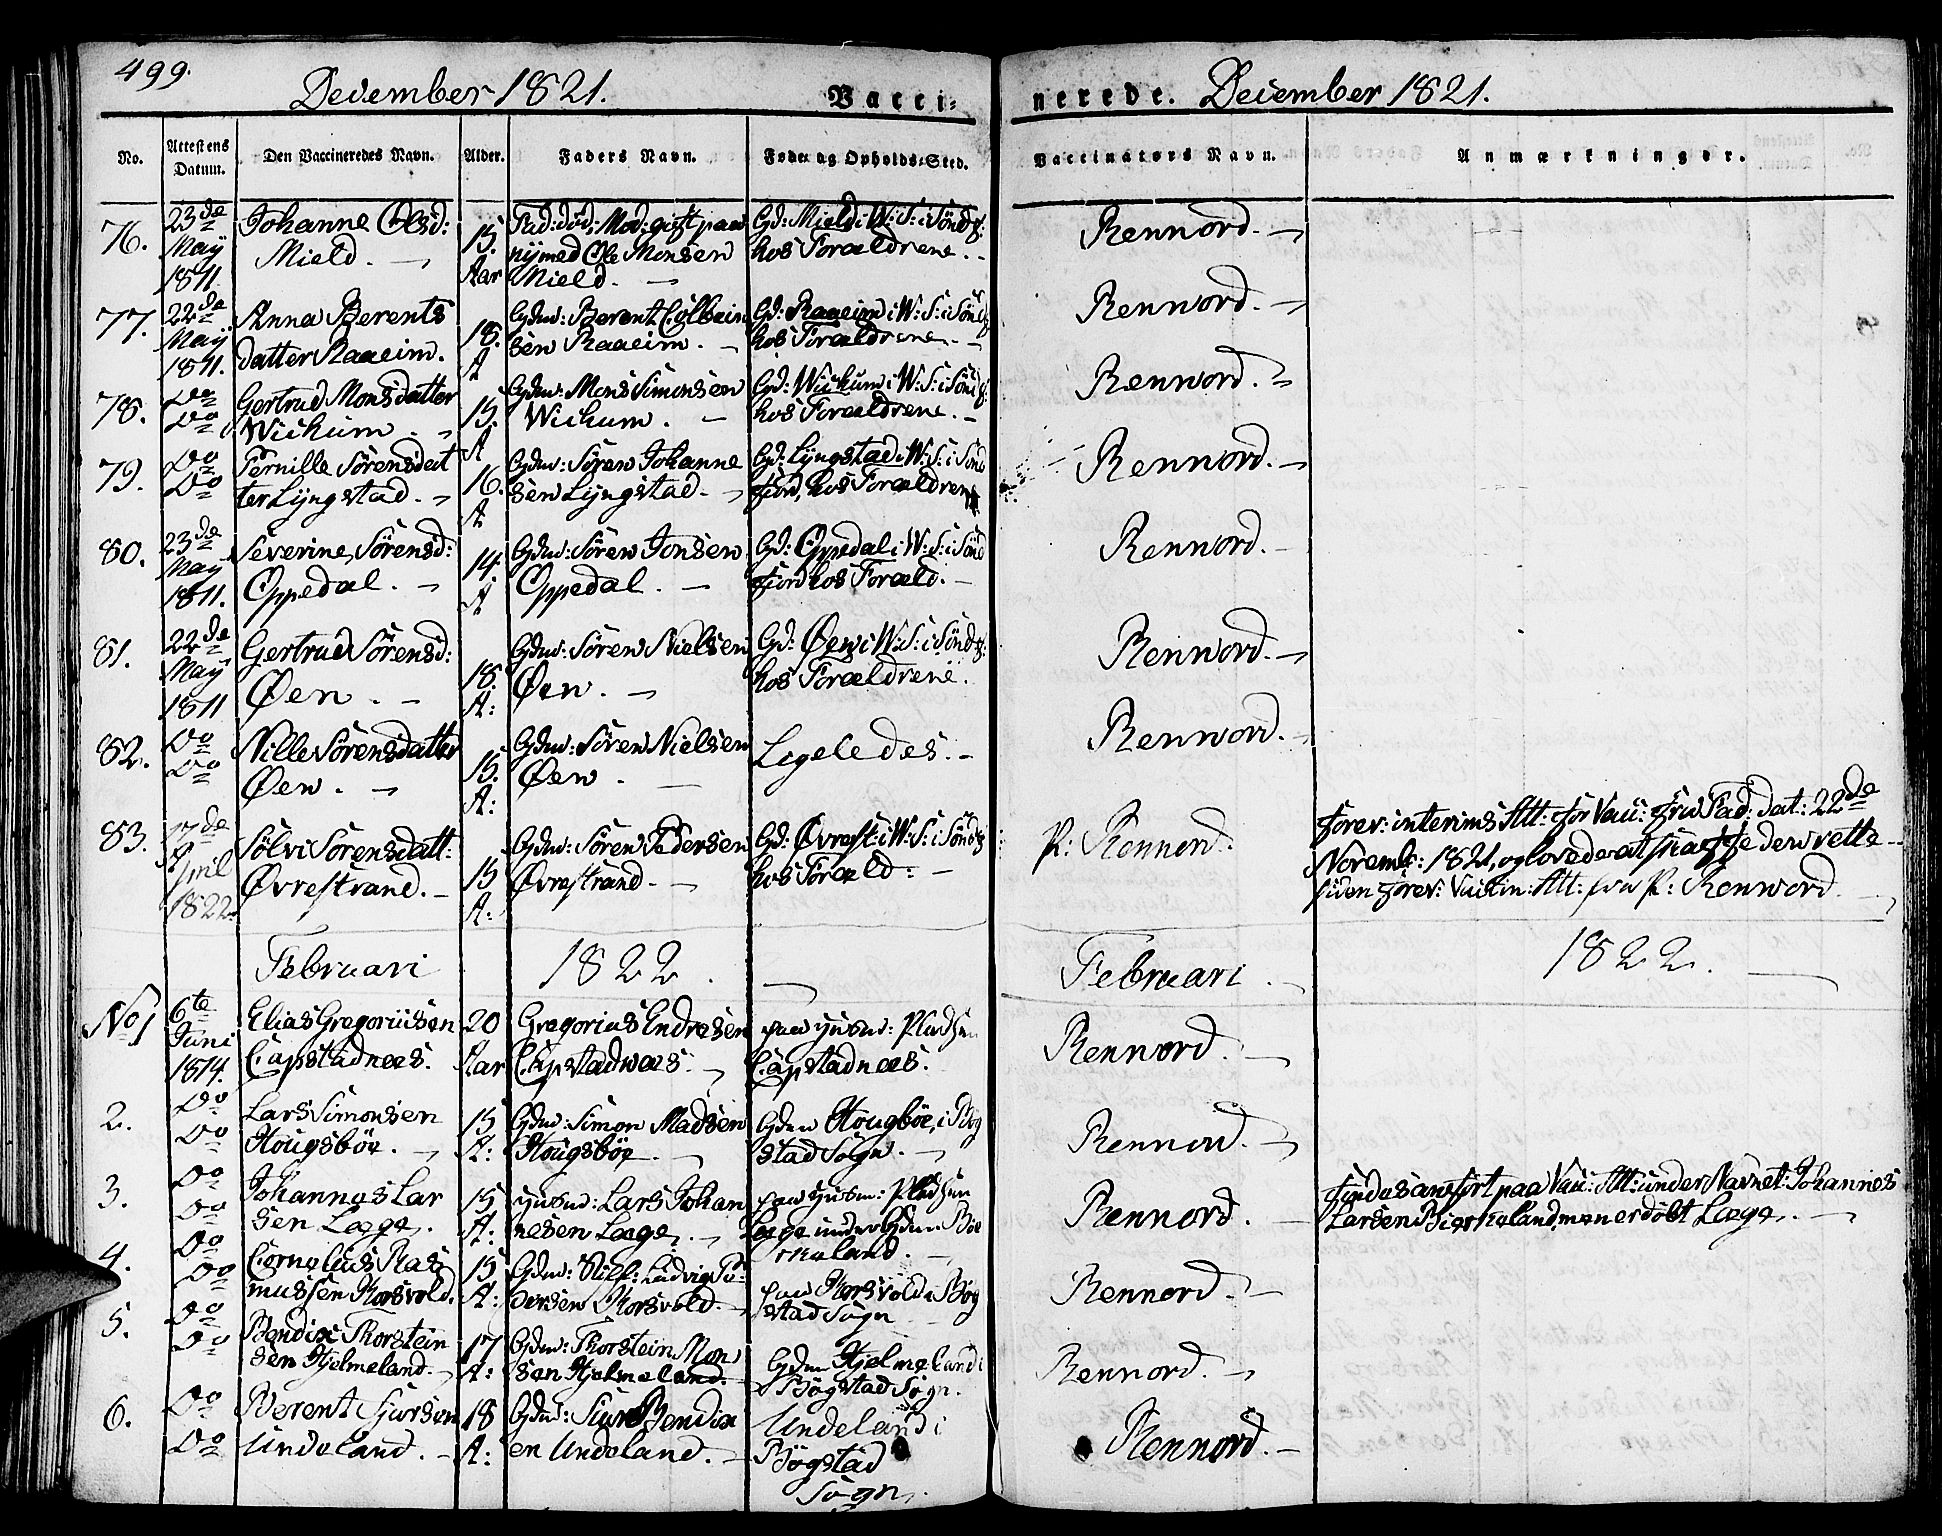 499.
December 1821.
Vacci=
nerede. December 1821.
No.
Attestens Datum.
Den Vaccineredes Navn.
Alder.
Faders Navn.
Føde- og Opholds-Sted.
Vaccinators Navn.
Anmærkninger.
76.
23de May 1811.
Johanne Olsd:
Mield.
15. Aar
Fad: død; Mod: gift paa
nÿ med Ole Monsen
Mield.
Gd: Mield i W: S: i Söndf:
hos Forældrene.
Rennord.
77.
22de Maÿ 1811.
Anna Berents
datter Raaeim.
18. A
Gdm: Berent Colbein
sen Raaeim.
Gd: Raaeim i W: S: i Söndf
hos Forældrene.
Rennord.
78.
Do Do
Gertrud Monsdatter
Wichum.
15. A
Gdm: Mons Simonsen
Wichum.
Gd: Wichum i W: S: i Söndf:
hos Forældrene.
Rennord.
79.
Do Do
Pernille Sörensdat
ter Lÿngstad.
16. A
Gdm: Sören Johanne
sen Lÿngstad.
Gd: Lÿngstad i W: S: i Sönd
fiord, hos Forældrene
Rennord.
80.
23de May 1811.
Severine Sörensd:
Oppedal.
14. A
Gdm: Sören Jonsen
Oppedal.
Gd: Oppedal i W: S: i Sönd
fiord hos Foræld.
Rennord.
81.
22de Maÿ 1811
Gertrud Sörensd:
Øen.
18. A:
Gdm: Sören Nielsen
Øen.
Gd: Øen i W: S: i Söndf:
hos Forældrene.
Rennord.
82.
Do Do
Nille Sörensdatter
Øen.
15. A:
Gdm: Sören Nielsen
Øen.
Ligeledes.
Rennord.
83.
17de April 1822.
Sölvi Sörensdatt:
Øvrestrand.
15 A:
Gdm: Sören Pedersen
Øvrestrand.
Gd: Øvrest: i W: S: i Söndf
hos Foræld:
P: Rennord.
forev: interims Att: for Vacc: fra Fad: dat: 22de
Novembr: 1821, og lovede at skaffe den rette
siden forev: Vaccin: Att: fra P: Rennord.
Februari
1822.
Februari.
1822.
No 1
6te Juni 1814.
Elias Gregoriisen
Capstadnæs.
20 Aar
Gregorius Endresen
Capstadnæs.
paa Huusm: Pladsen
Capstadnæs.
Rennord.
2.
Do Do
Lars Simonsen
Hougsböe.
15 A:
Gdm: Simon Madsen
Hougsböe.
Gden Hougböe, i Bög
stad Sogn.
Rennord.
3.
Do Do
Johannes Lar
sen Læge.
15 A:
Huusm: Lars Johan
nesen Læge.
paa Huusm: Pladsen
Læge under Gden Bir
keland.
Rennord.
findes anfört paa Vacc: Att: under Navnet: Johannes
Larsen Bierkeland, men er döbt Læge.
4.
Do Do
Cornelius Ras
mussen Horsvold.
15 A:
Gdm: Stiff: Ludvig Pe
dersen Horsvold.
paa Horsvold i Bög
stad Sogn
Rennord.
5.
Do Do
Bendix Thorstein
sen Hjelmeland.
17 A:
Gdm: Thorstein Mon
sen Hjelmeland.
Gden Hjelmeland i
Bögstad Sogn.
Rennord.
6.
Do Do
Berent Siursen
Undeland.
18 A:
Gdm: Siur Bendix
en Undeland.
Undeland i
Bögstad
Sogn.
Rennord.